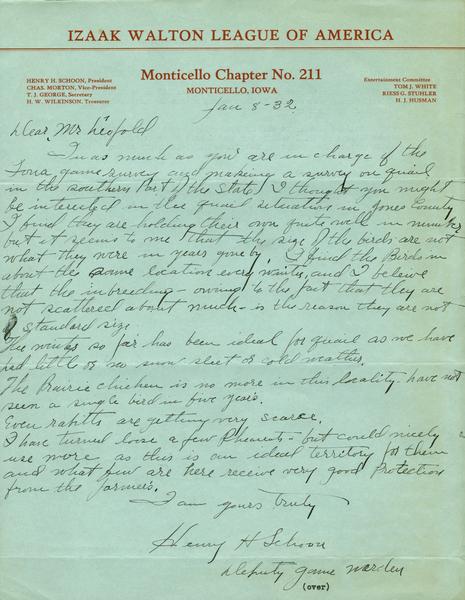 IZAAK WALTON LEAGUE OF AMERICA
HENRY H. SCHOON, President
CHAS. MORTON, Vice-President
T. J. GEORGE, Secretary
H. W. WILKINSON, Treasurer
Monticello Chapter No. 211
MONTICELLO, IOWA
Entertainment Committee
TOM J. WHITE
RIESS G. STUHLER
H. J. HUSMAN
Jan 8-32
Dear Mr Leopold
In as much as you are in charge of the
Iowa game survey and making a survey on quail
in the southern Part of the State, I thought you might
be interested in the quail situation in Jones County
I find they are holding their own quite well in number
but it seems to me that the size of the birds are not
what they were in years gone by. I find the Birds in
about the same location every winter, and I beleive
that the inbreeding - owing to the fact that they are
not scattered about much - is the reason they are not
of standard size.
The winter so far has been ideal for quail as we have
had little or no snow sleet or cold weather.
The Prairie chicken is no more in this locality - have not
seen a single bird in five years.
Even rabitts are getting very scarce.
I have turned loose a few - but could nicely
use more as this is an ideal territory for them
and what few are here receive very good Protection
from the farmers.
I am yours truly
Henry H Schoon
Deputy game warden
(over)